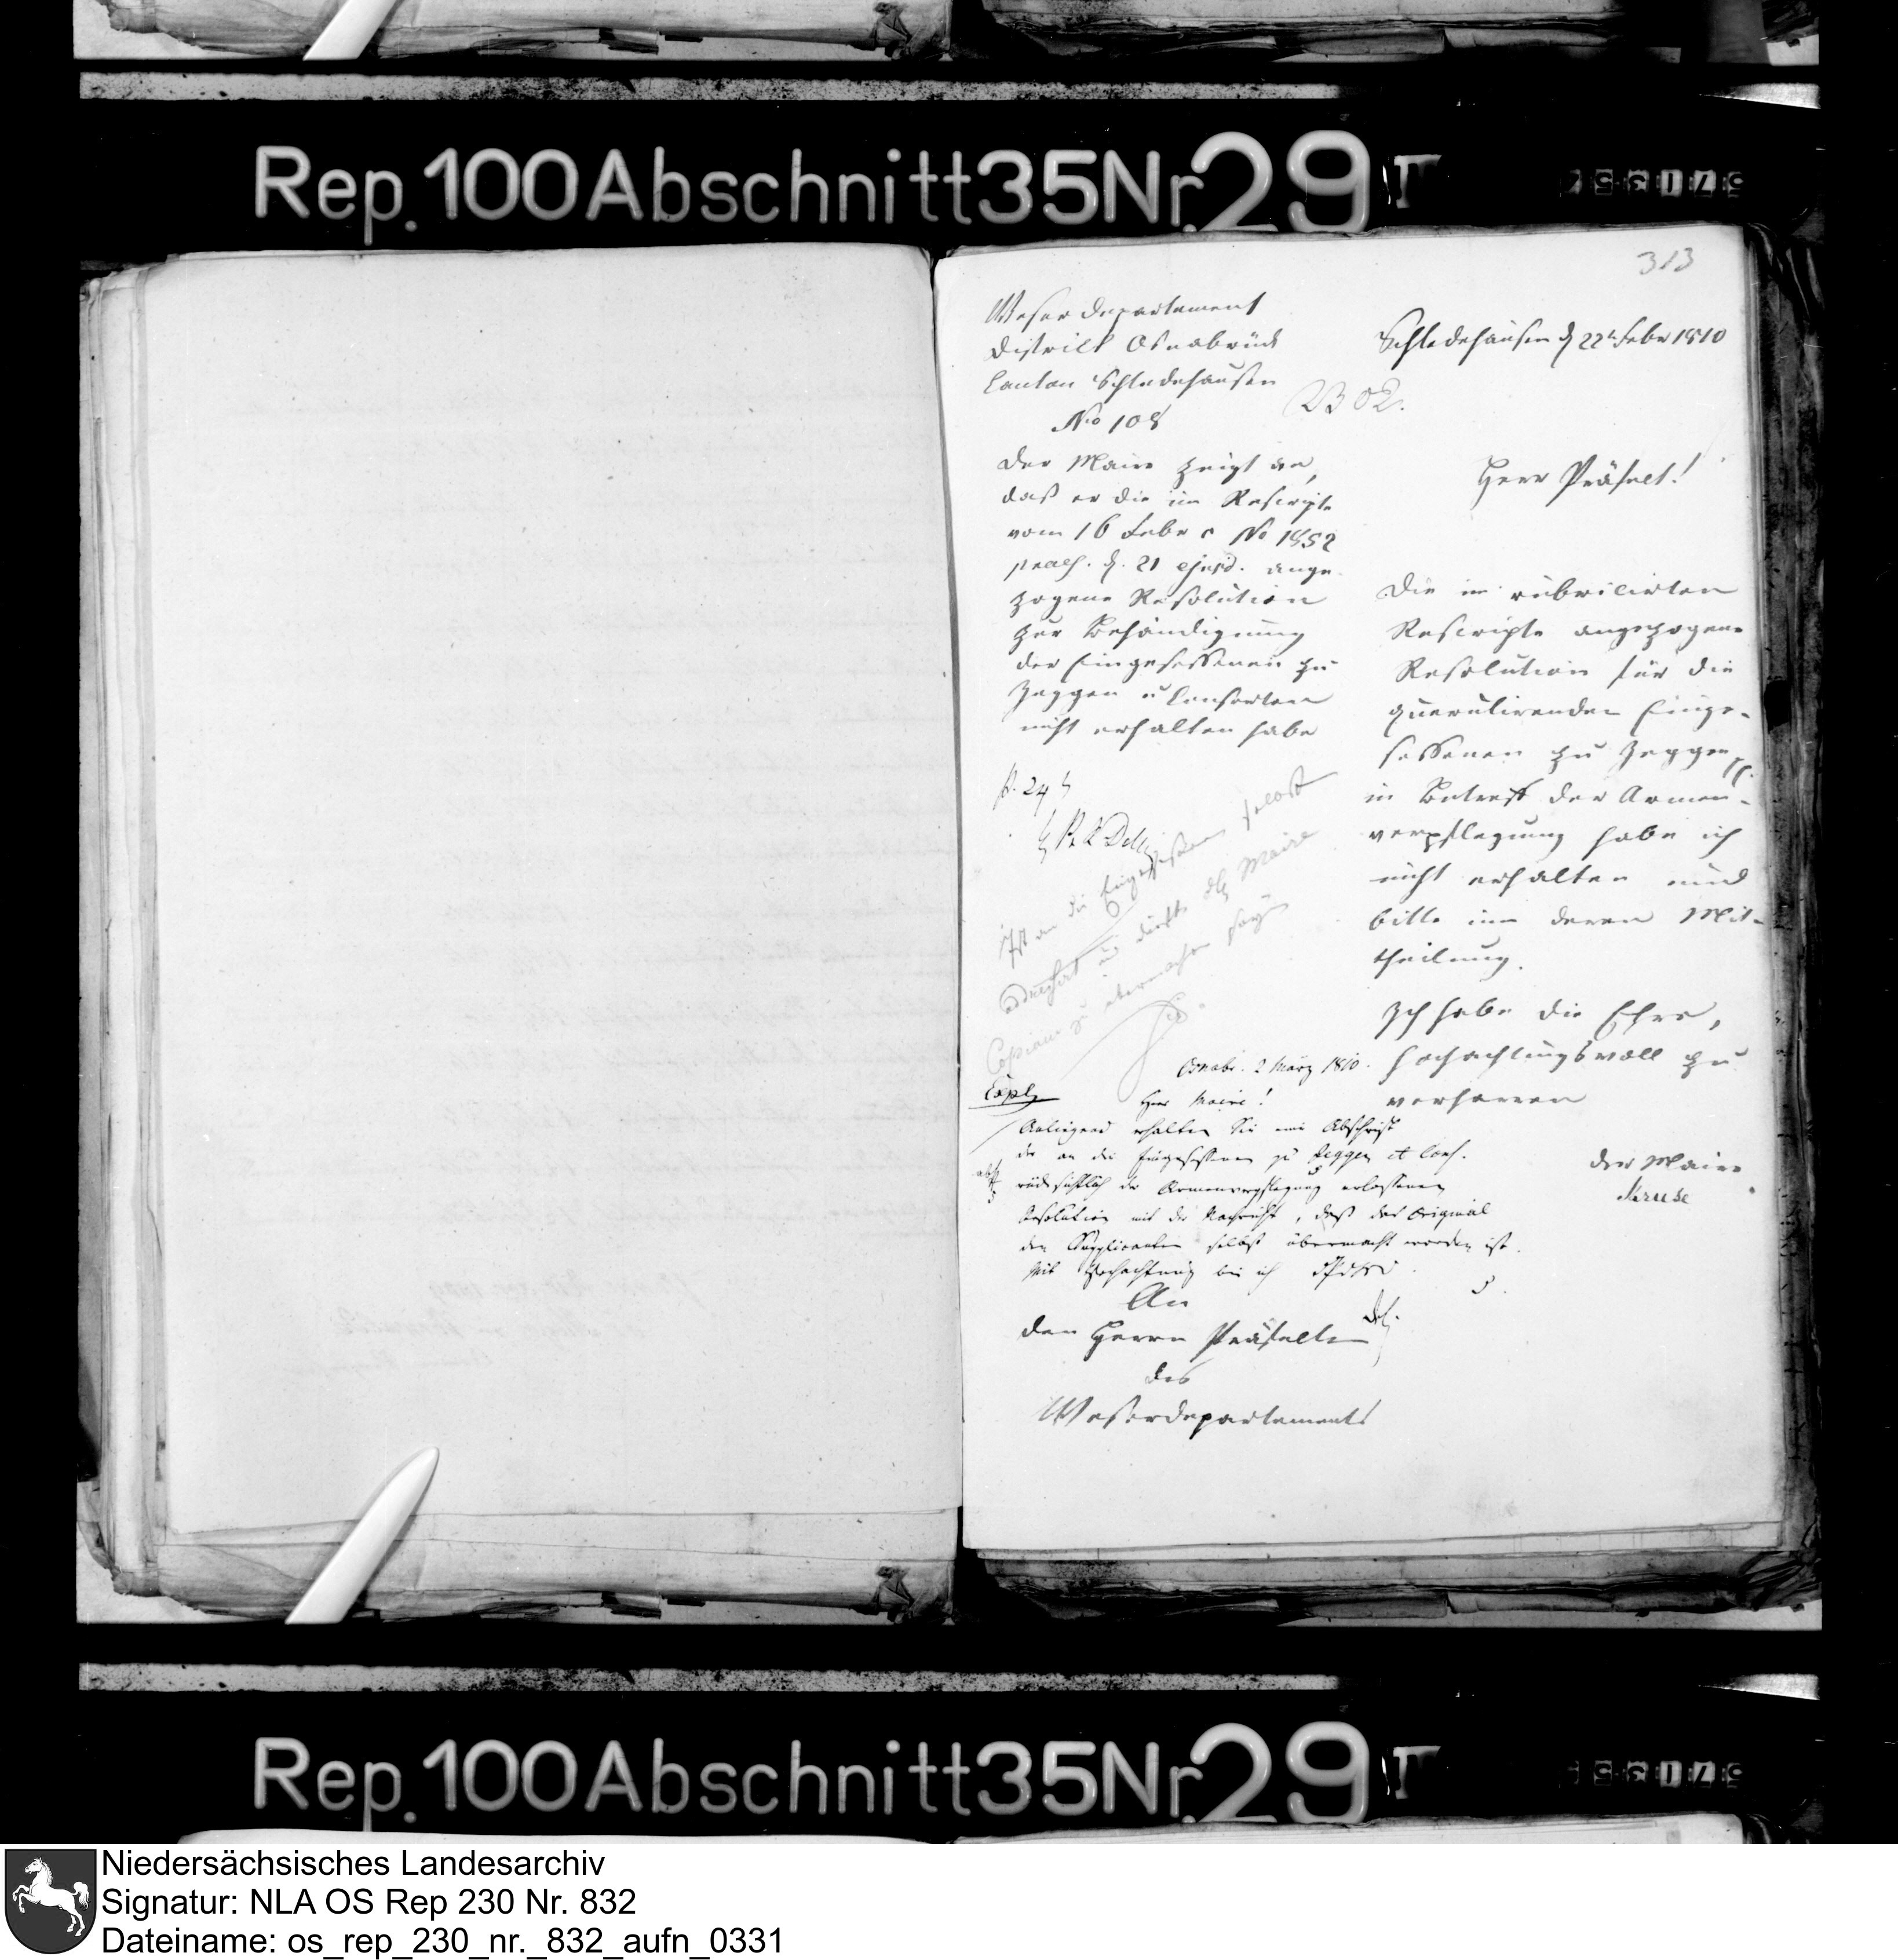 Rep. 100 Abschnitt 35 Nr. 29 I
313
Weser Departement
District Osnabrück
Canton Schledehausen
No 108
Schledehausen d 22t Febr 1810
Herr Präfect!
Der Maire zeigt an,
daß er die im Rescripte
vom 16 Febr c No 1852
praes. d. 21 ejusd. ange
zogene Resolution
zur Behändigung
der Eingesessenen zu
Jeggen u Consorten
nicht erhalten habe
Die im rubricirten
Rescripte angezogene
Resolution für die
querulirenden Einge-
sessenen zu Jeggen
in Betreff der Armen-
verpflegung habe ich
nicht erhalten und
bitte um deren Mit-
theilung.
Ich habe die Ehre,
hochachtungsvoll zu
verharren
Der Maire
Kruse
Ist an die Eingesessenen selbst
adressirt und dieß dem Maire
Osnabr. 2 März 1810.
Herr Maire!
Anliegend erhalten Sie eine Abschrift
der an die Eingesessenen zu Jeggen et Cons.
rücksichtlich der Armenverpflegung erlassenen
Resolution mit der Nachricht, daß das Original
den Supplicanten selbst übermacht worden ist.
Mit Hochachtung bin ich
An
den Herrn Präfecten
des
Weserdepartements
Rep. 100 Abschnitt 35 Nr. 29 I
Niedersächsisches Landesarchiv
Signatur: NLA OS Rep 230 Nr. 832
Dateiname: os_rep_230_nr._832_aufn_0331